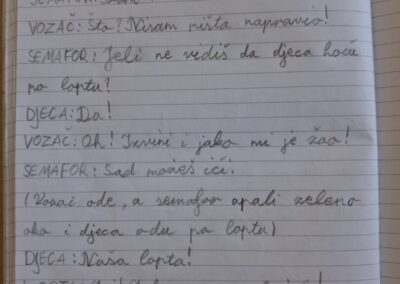 SEMAFOR:
VOZAČ: Šta? Nisam ništa napravio!
SEMAFOR: Jeli ne vidiš da djeca hoće
po loptu?
DJECA: Da!
VOZAČ: Oh! Izvini i jako mi je žao!
SEMAFOR: Sad možeš ići.
(Vozač ode, a semafor upali zeleno
oko i djeca odu po loptu)
DJECA: Naša lopta!